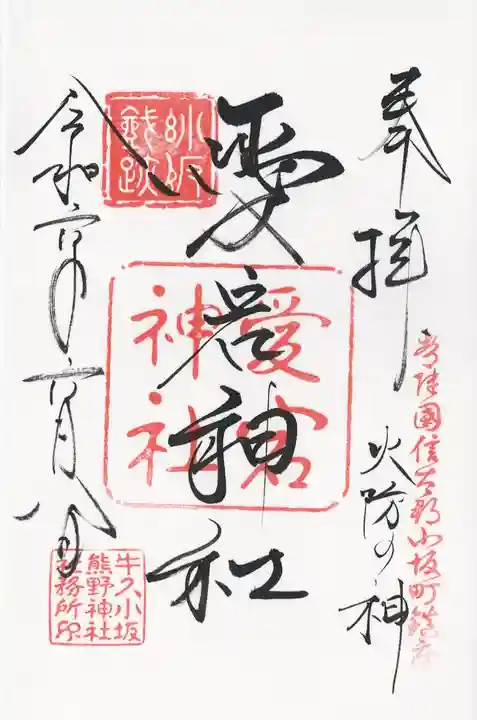 奉拝
常陸國信太郡小坂町鎮座
火防の神
愛宕神社
愛宕
神社
小坂
鉞跡
令和六年六月八日
牛久小坂
熊野神社
社務所印